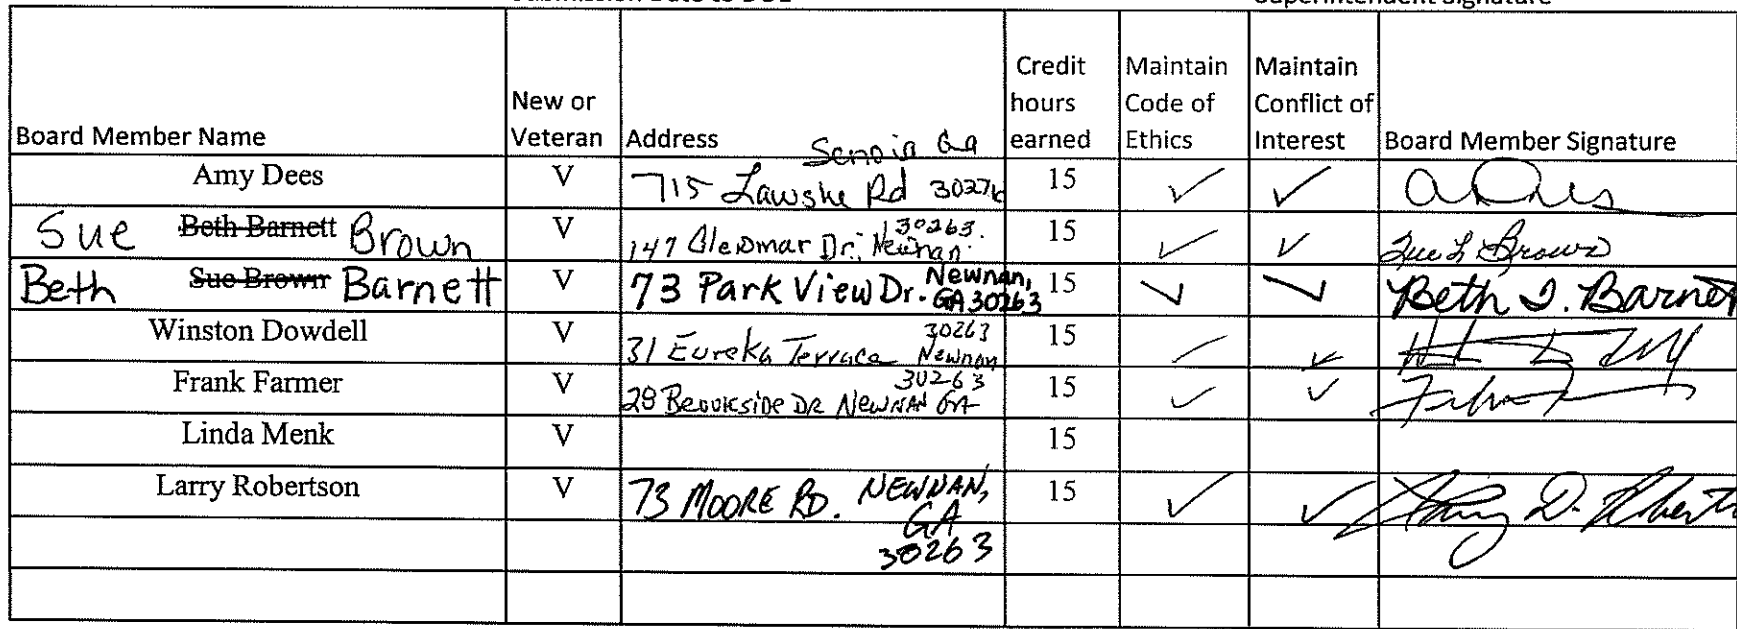 Board Member Name New or Veteran Address Credit hours earned Maintain Code of Ethics Maintain Conflict of Interest Board Member Signature
Senoia Ga
Amy Dees V 715 Lawshe Rd 30276 15 ✓ ✓
30263.
Sue Beth Barnett Brown V 147 Dr. Newnan 15 ✓ ✓ Sue L Brown
Newnan,
Beth Sue Brown Barnett V 73 Park View Dr. GA 30263 15 ✓ ✓ Beth J. Barnett
30263
Winston Dowdell V 31 Eureka Terrace Newnan 15 ✓ ✓
30263
Frank Farmer V 28 Brookside DR Newnan GA 15 ✓ ✓
Linda Menk V 15
Larry Robertson V 73 MOORE RD. NEWNAN, 15 ✓ ✓
GA
30263